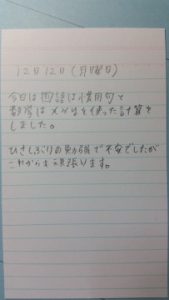 12月12日(月曜日)
今日は国語は慣用句と
数学はメ を使った計算を
しました。
ひさしぶりの勉強で不安でしたが
これからも頑張ります。